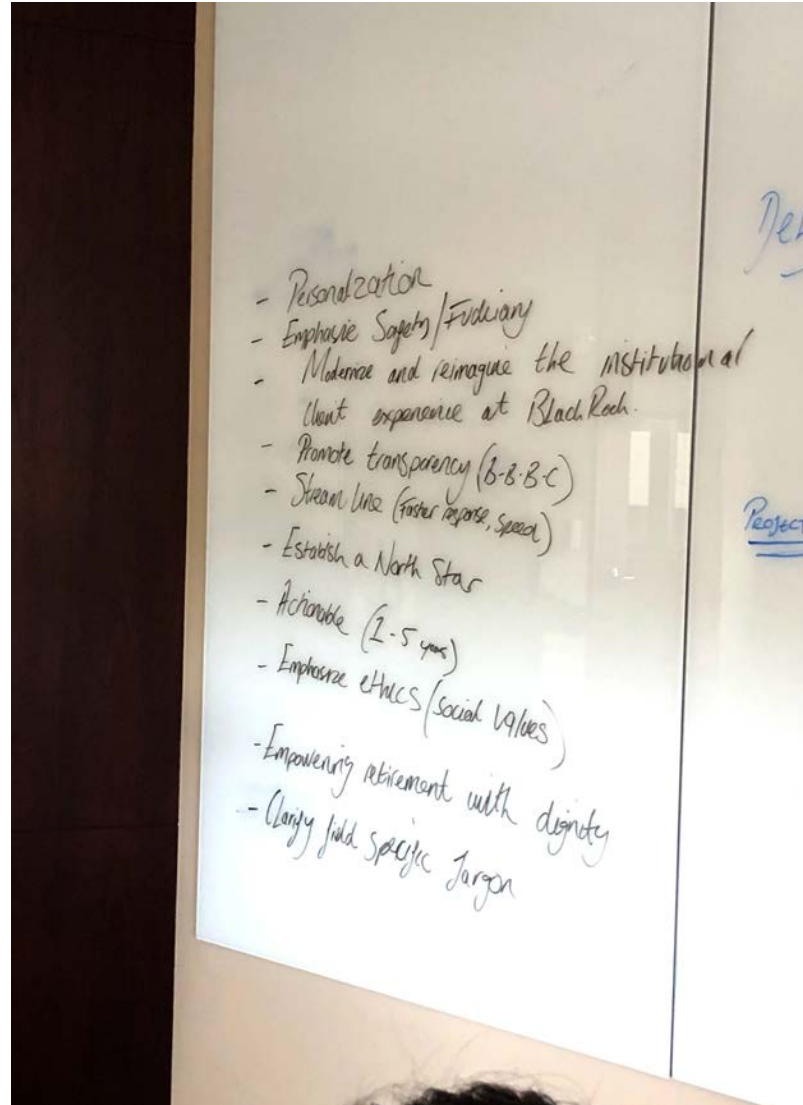 - Personalzation
- Emphasie Safety/Fuduciary
- Modernize and reimagine the institutional
client experience at BlackRock.
- Promote transparency (B-B-B-C)
- Stream line (Faster response, speed)
- Establish a North Star
- Actionable (1-5 years)
- Emphasize ethics (social values)
- Empowering retirement with dignity
- Clarify field specific Jargon
Project